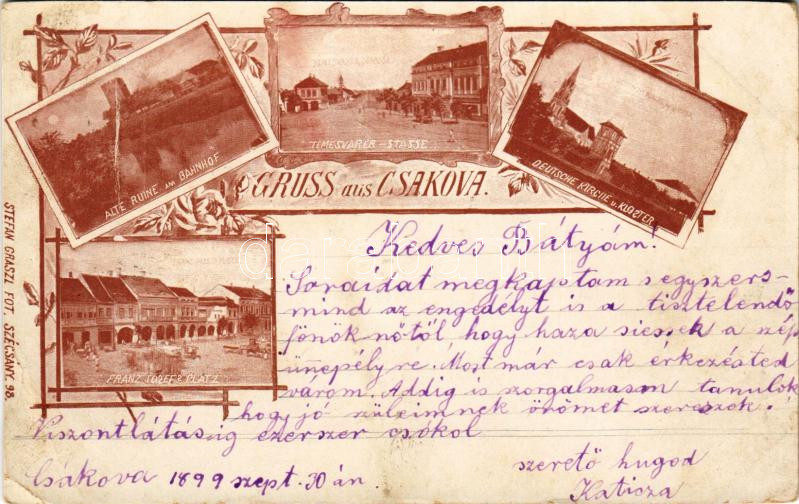 ALTE RUINE AM BAHNHOF
TEMESVARER-STASSE
DEUTSCHE KIRCHE U. KLOSTER
GRUSS aus CSAKOVA.
FRANZ JOZEFS PLATZ
STEFAN GRASZL FOT. SZÉCSÁNY. 98.
Kedves Bátyám!
Soraidat megkaptam s egyszers-
mind az engedélyt is a tisztelendő
főnök nőtől, hogy haza siessek a szép
ünnepélyre. Most már csak érkezésted
várom. Addig is szorgalmasan tanulok
hogy jó szüleimnek örömet szerezzek.
Viszontlátásig ezerszer csókol
szerető hugod
Katicza
Csákova 1899 szept. 30 án.